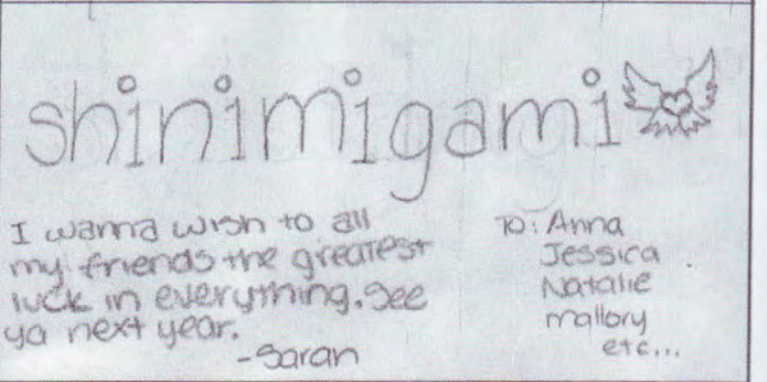 shinimigami
I wanna wish to all
my friends the greatest
luck in everything. See
ya next year.
-Sarah
To: Anna
Jessica
Natalie
mallory
etc...